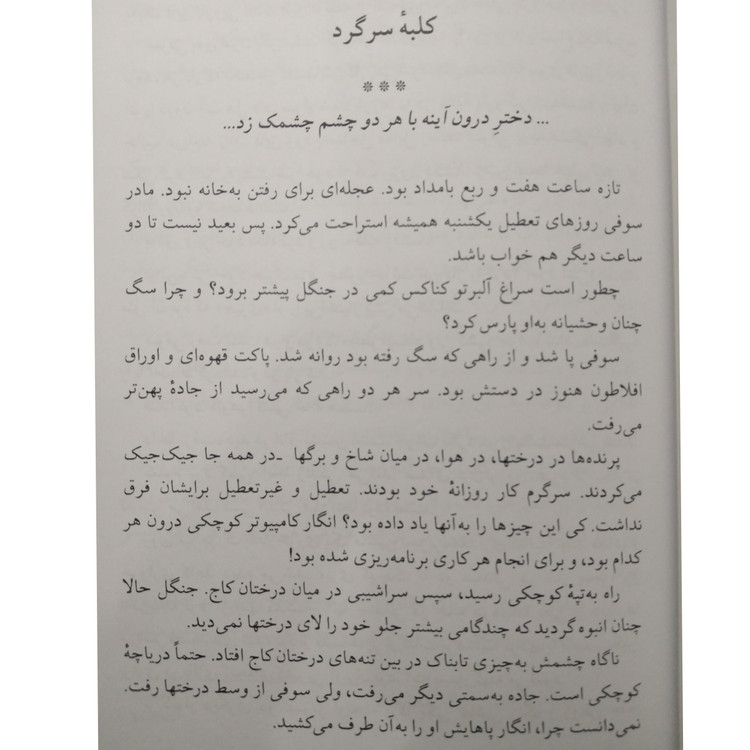 کلبهٔ سرگرد
* * *
... دخترِ درون آینه با هر دو چشم چشمک زد...
تازه ساعت هفت و ربع بامداد بود. عجله‌ای برای رفتن به‌خانه نبود. مادر
سوفی روزهای تعطیل یکشنبه همیشه استراحت می‌کرد. پس بعید نیست تا دو
ساعت دیگر هم خواب باشد.
چطور است سراغ آلبرتو کناکس کمی در جنگل پیشتر برود؟ و چرا سگ
چنان وحشیانه به‌او پارس کرد؟
سوفی پا شد و از راهی که سگ رفته بود روانه شد. پاکت قهوه‌ای و اوراق
افلاطون هنوز در دستش بود. سر هر دو راهی که می‌رسید از جادهٔ پهن‌تر
می‌رفت.
پرنده‌ها در درختها، در هوا، در میان شاخ و برگها -در همه جا جیک‌جیک
می‌کردند. سرگرم کار روزانهٔ خود بودند. تعطیل و غیرتعطیل برایشان فرق
نداشت. کی این چیزها را به‌آنها یاد داده بود؟ انگار کامپیوتر کوچکی درون هر
کدام بود، و برای انجام هر کاری برنامه‌ریزی شده بود!
راه به‌تپهٔ کوچکی رسید، سپس سراشیبی در میان درختان کاج. جنگل حالا
چنان انبوه گردید که چندگامی بیشتر جلو خود را لای درختها نمی‌دید.
ناگاه چشمش به‌چیزی تابناک در بین تنه‌های درختان کاج افتاد. حتماً دریاچهٔ
کوچکی است. جاده به‌سمتی دیگر می‌رفت، ولی سوفی از وسط درختها رفت.
نمی‌دانست چرا، انگار پاهایش او را به‌آن طرف می‌کشید.